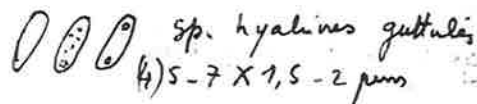 sp. hyalines guttulés
(4)5-7 X 1,5-2 µm